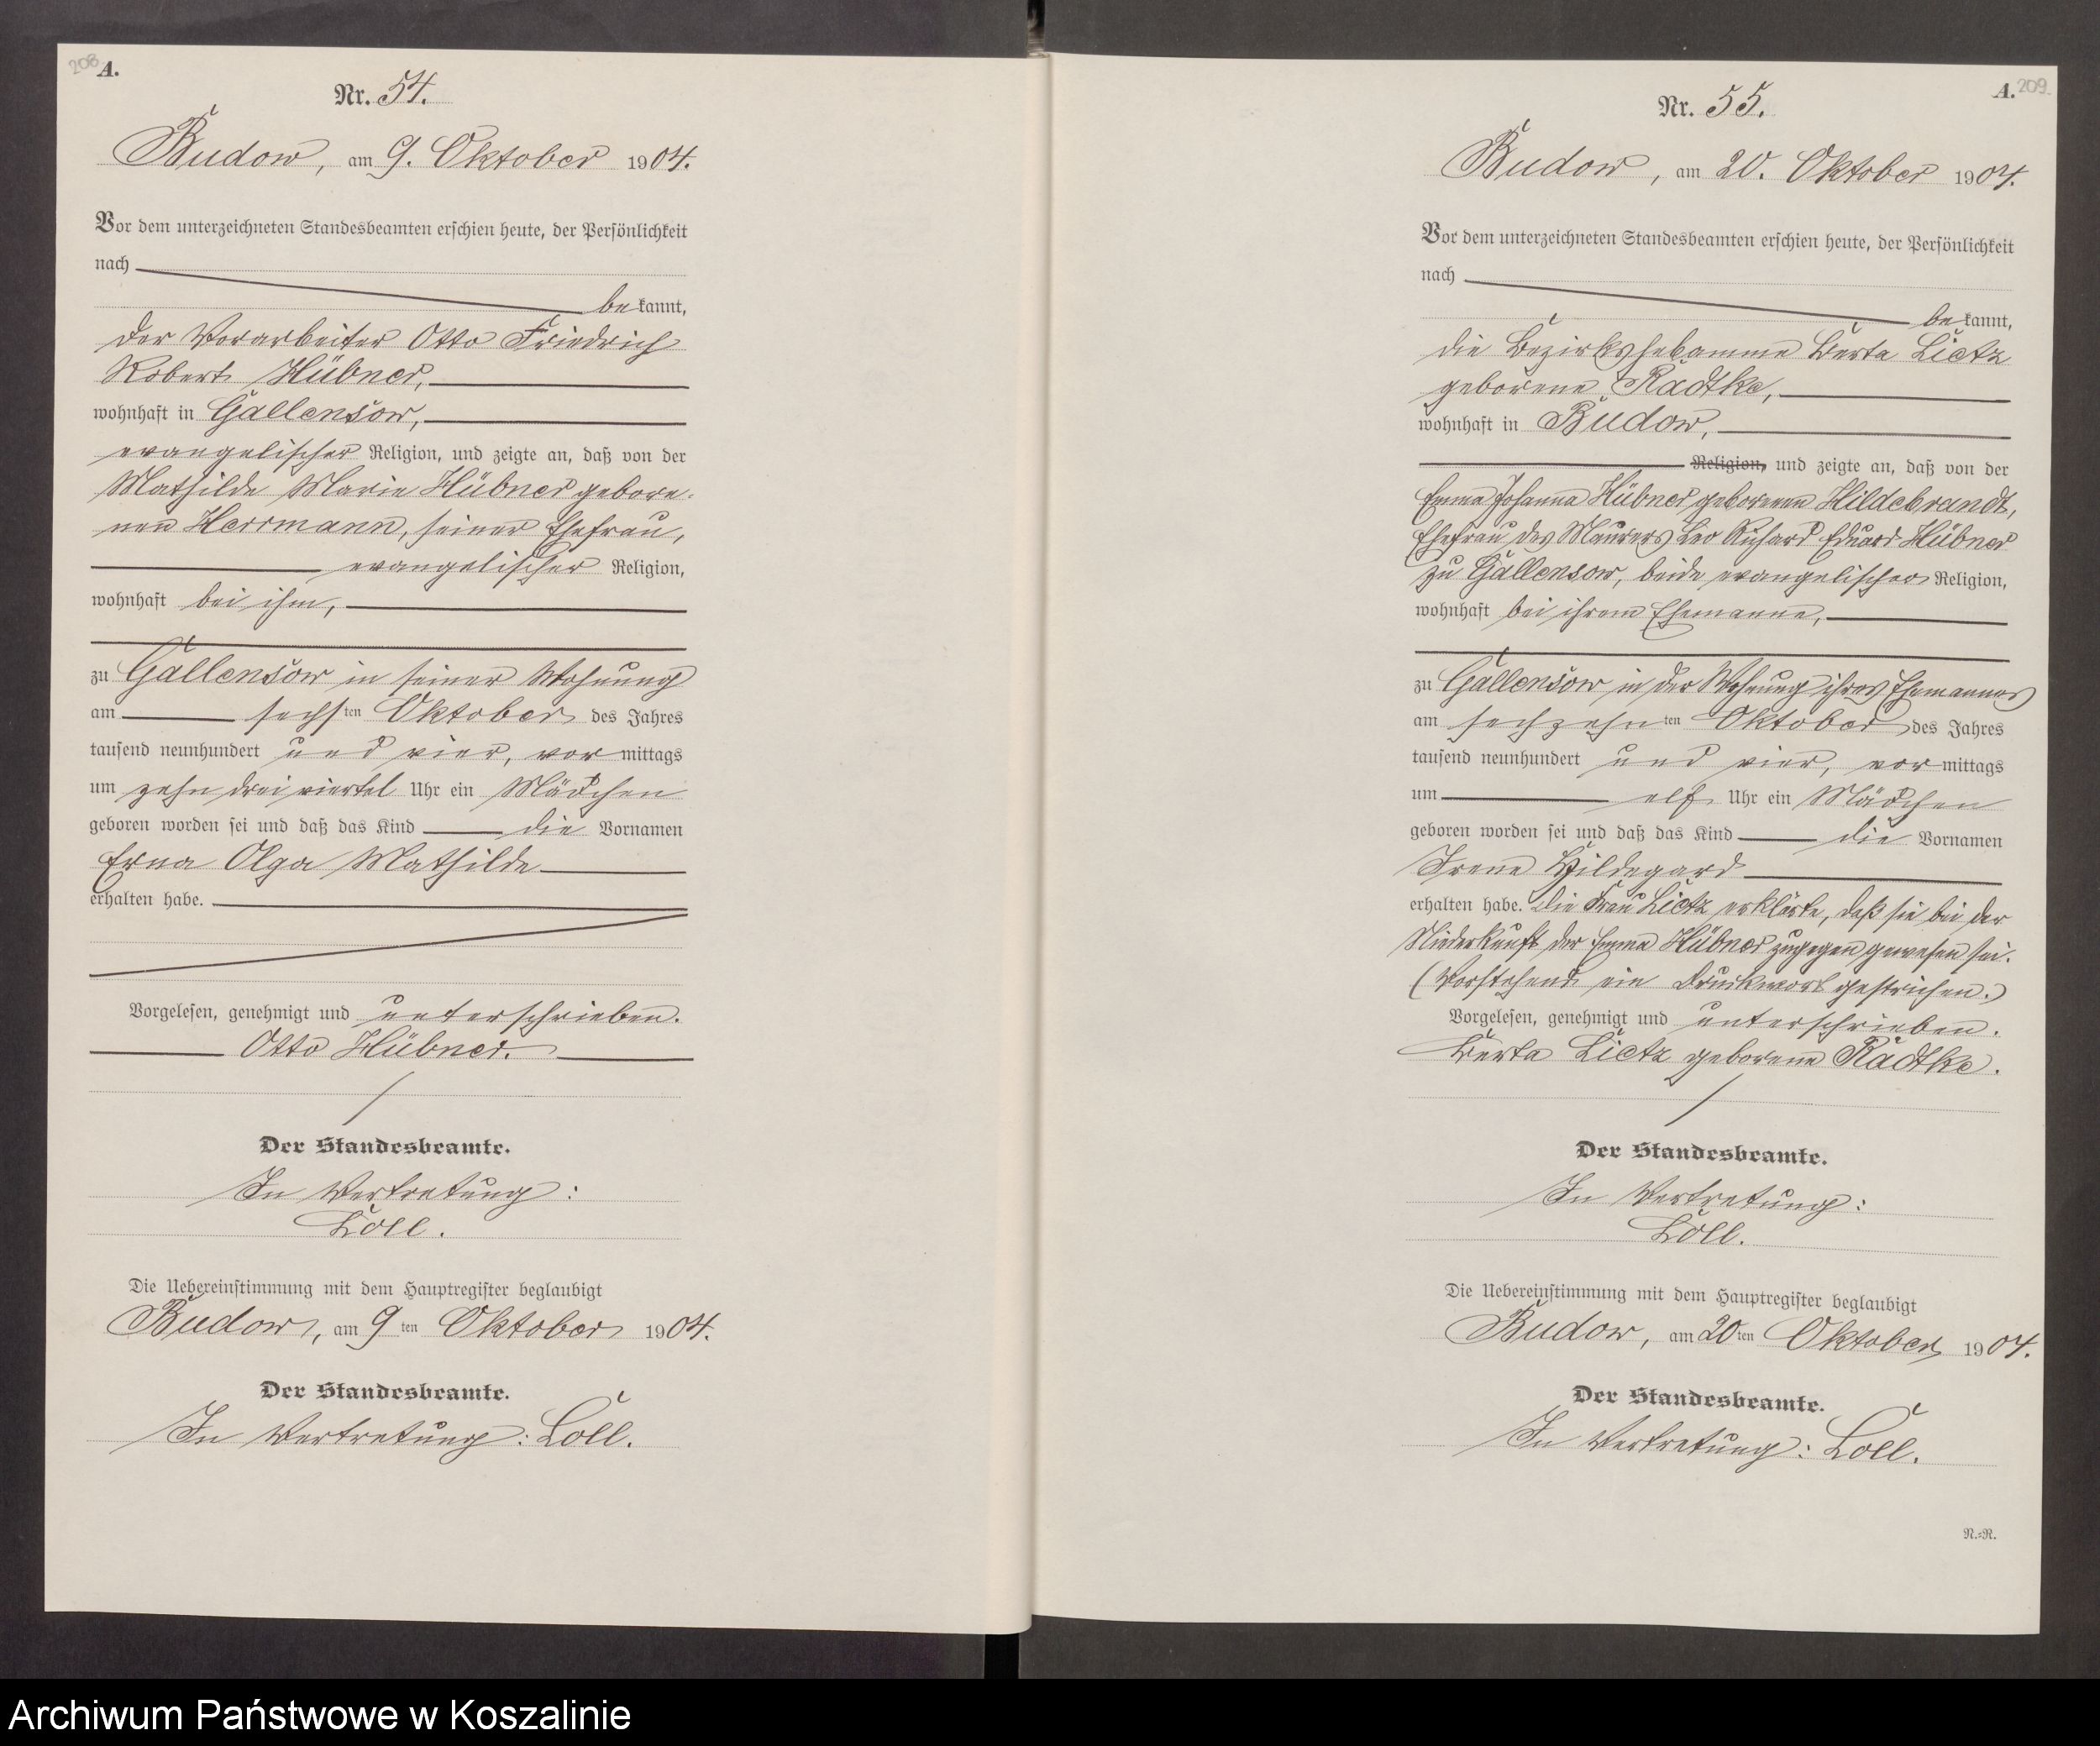 208
A.
Nr. 54.
Budow, am 9. Oktober 1904.
Vor dem unterzeichneten Standesbeamten erschien heute, der Persönlichkeit
nach
bekannt,
der Vorarbeiter Otto Friedrich
Robert Hübner,
wohnhaft in Gallensow,
evangelischer Religion, und zeigte an, daß von der
Mathilde Marie Hübner gebore-
nen Herrmann, seiner Ehefrau,
evangelischer Religion,
wohnhaft bei ihm,
zu Gallensow in seiner Wohnung
am sechsten Oktober des Jahres
tausend neunhundert und vier, vormittags
um zehn drei viertel Uhr ein Mädchen
geboren worden sei und daß das Kind die Vornamen
Erna Olga Mathilde
erhalten habe.
Vorgelesen, genehmigt und unterschrieben.
Otto Hübner.
Der Standesbeamte.
In Vertretung:
Loll.
Die Uebereinstimmung mit dem Hauptregister beglaubigt
Budow, am 9ten Oktober 1904.
Der Standesbeamte.
In Vertretung: Loll.
A.
209.
Nr. 55.
Budow, am 20. Oktober 1904.
Vor dem unterzeichneten Standesbeamten erschien heute, der Persönlichkeit
nach
bekannt,
die Bezirkshebamme Berta Lietz
geborene Radtke,
wohnhaft in Budow,
Religion, und zeigte an, daß von der
Emma Johanna Hübner geborenen Hildebrandt,
Ehefrau des Maurers Leo Richard Eduard Hübner
zu Gallensow, beide evangelischer Religion,
wohnhaft bei ihrem Ehemanne,
zu Gallensow in der Wohnung ihres Ehemannes
am sechzehnten Oktober des Jahres
tausend neunhundert und vier, vormittags
um elf Uhr ein Mädchen
geboren worden sei und daß das Kind die Vornamen
Irene Hildegard
erhalten habe. Die Frau Lietz erklärte, daß sie bei der
Niederkunft der Emma Hübner zugegen gewesen sei.
(Vorstehend ein Druckwort gestrichen.)
Vorgelesen, genehmigt und unterschrieben.
Berta Lietz geborene Radtke.
Der Standesbeamte.
In Vertretung:
Loll.
Die Uebereinstimmung mit dem Hauptregister beglaubigt
Budow, am 20ten Oktober 1904.
Der Standesbeamte.
In Vertretung: Loll.
N.=R.
Archiwum Państwowe w Koszalinie